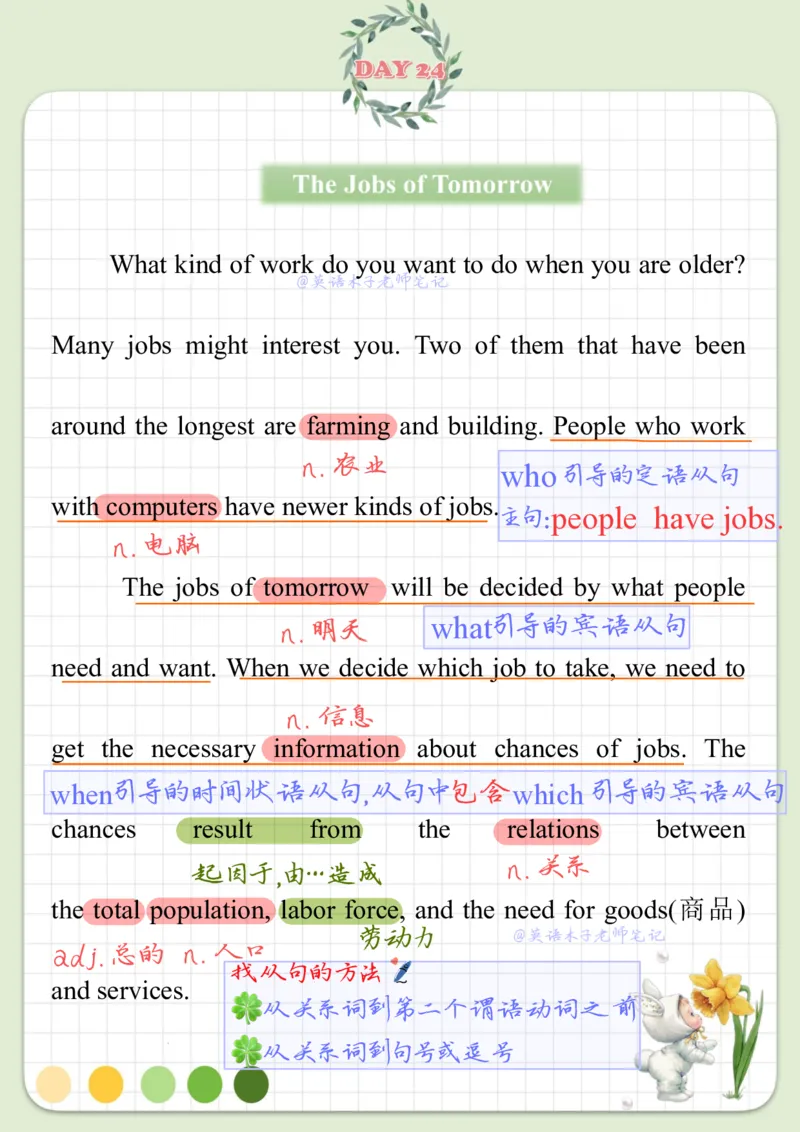 DAY 24
The Jobs of Tomorrow
What kind of work do you want to do when you are older?
@英语木子老师笔记
Many jobs might interest you. Two of them that have been
around the longest are farming and building. People who work
n. 农业
who引导的定语从句
with computers have newer kinds of jobs.
主句:people have jobs.
n. 电脑
The jobs of tomorrow will be decided by what people
n. 明天
what引导的宾语从句
need and want. When we decide which job to take, we need to
n. 信息
get the necessary information about chances of jobs. The
when引导的时间状语从句,从句中包含which引导的宾语从句
chances result from the relations between
起因于,由…造成
n. 关系
the total population, labor force, and the need for goods(商品)
劳动力
@英语木子老师笔记
adj. 总的 n. 人口
and services.
找从句的方法
从关系词到第二个谓语动词之前
从关系词到句号或逗号